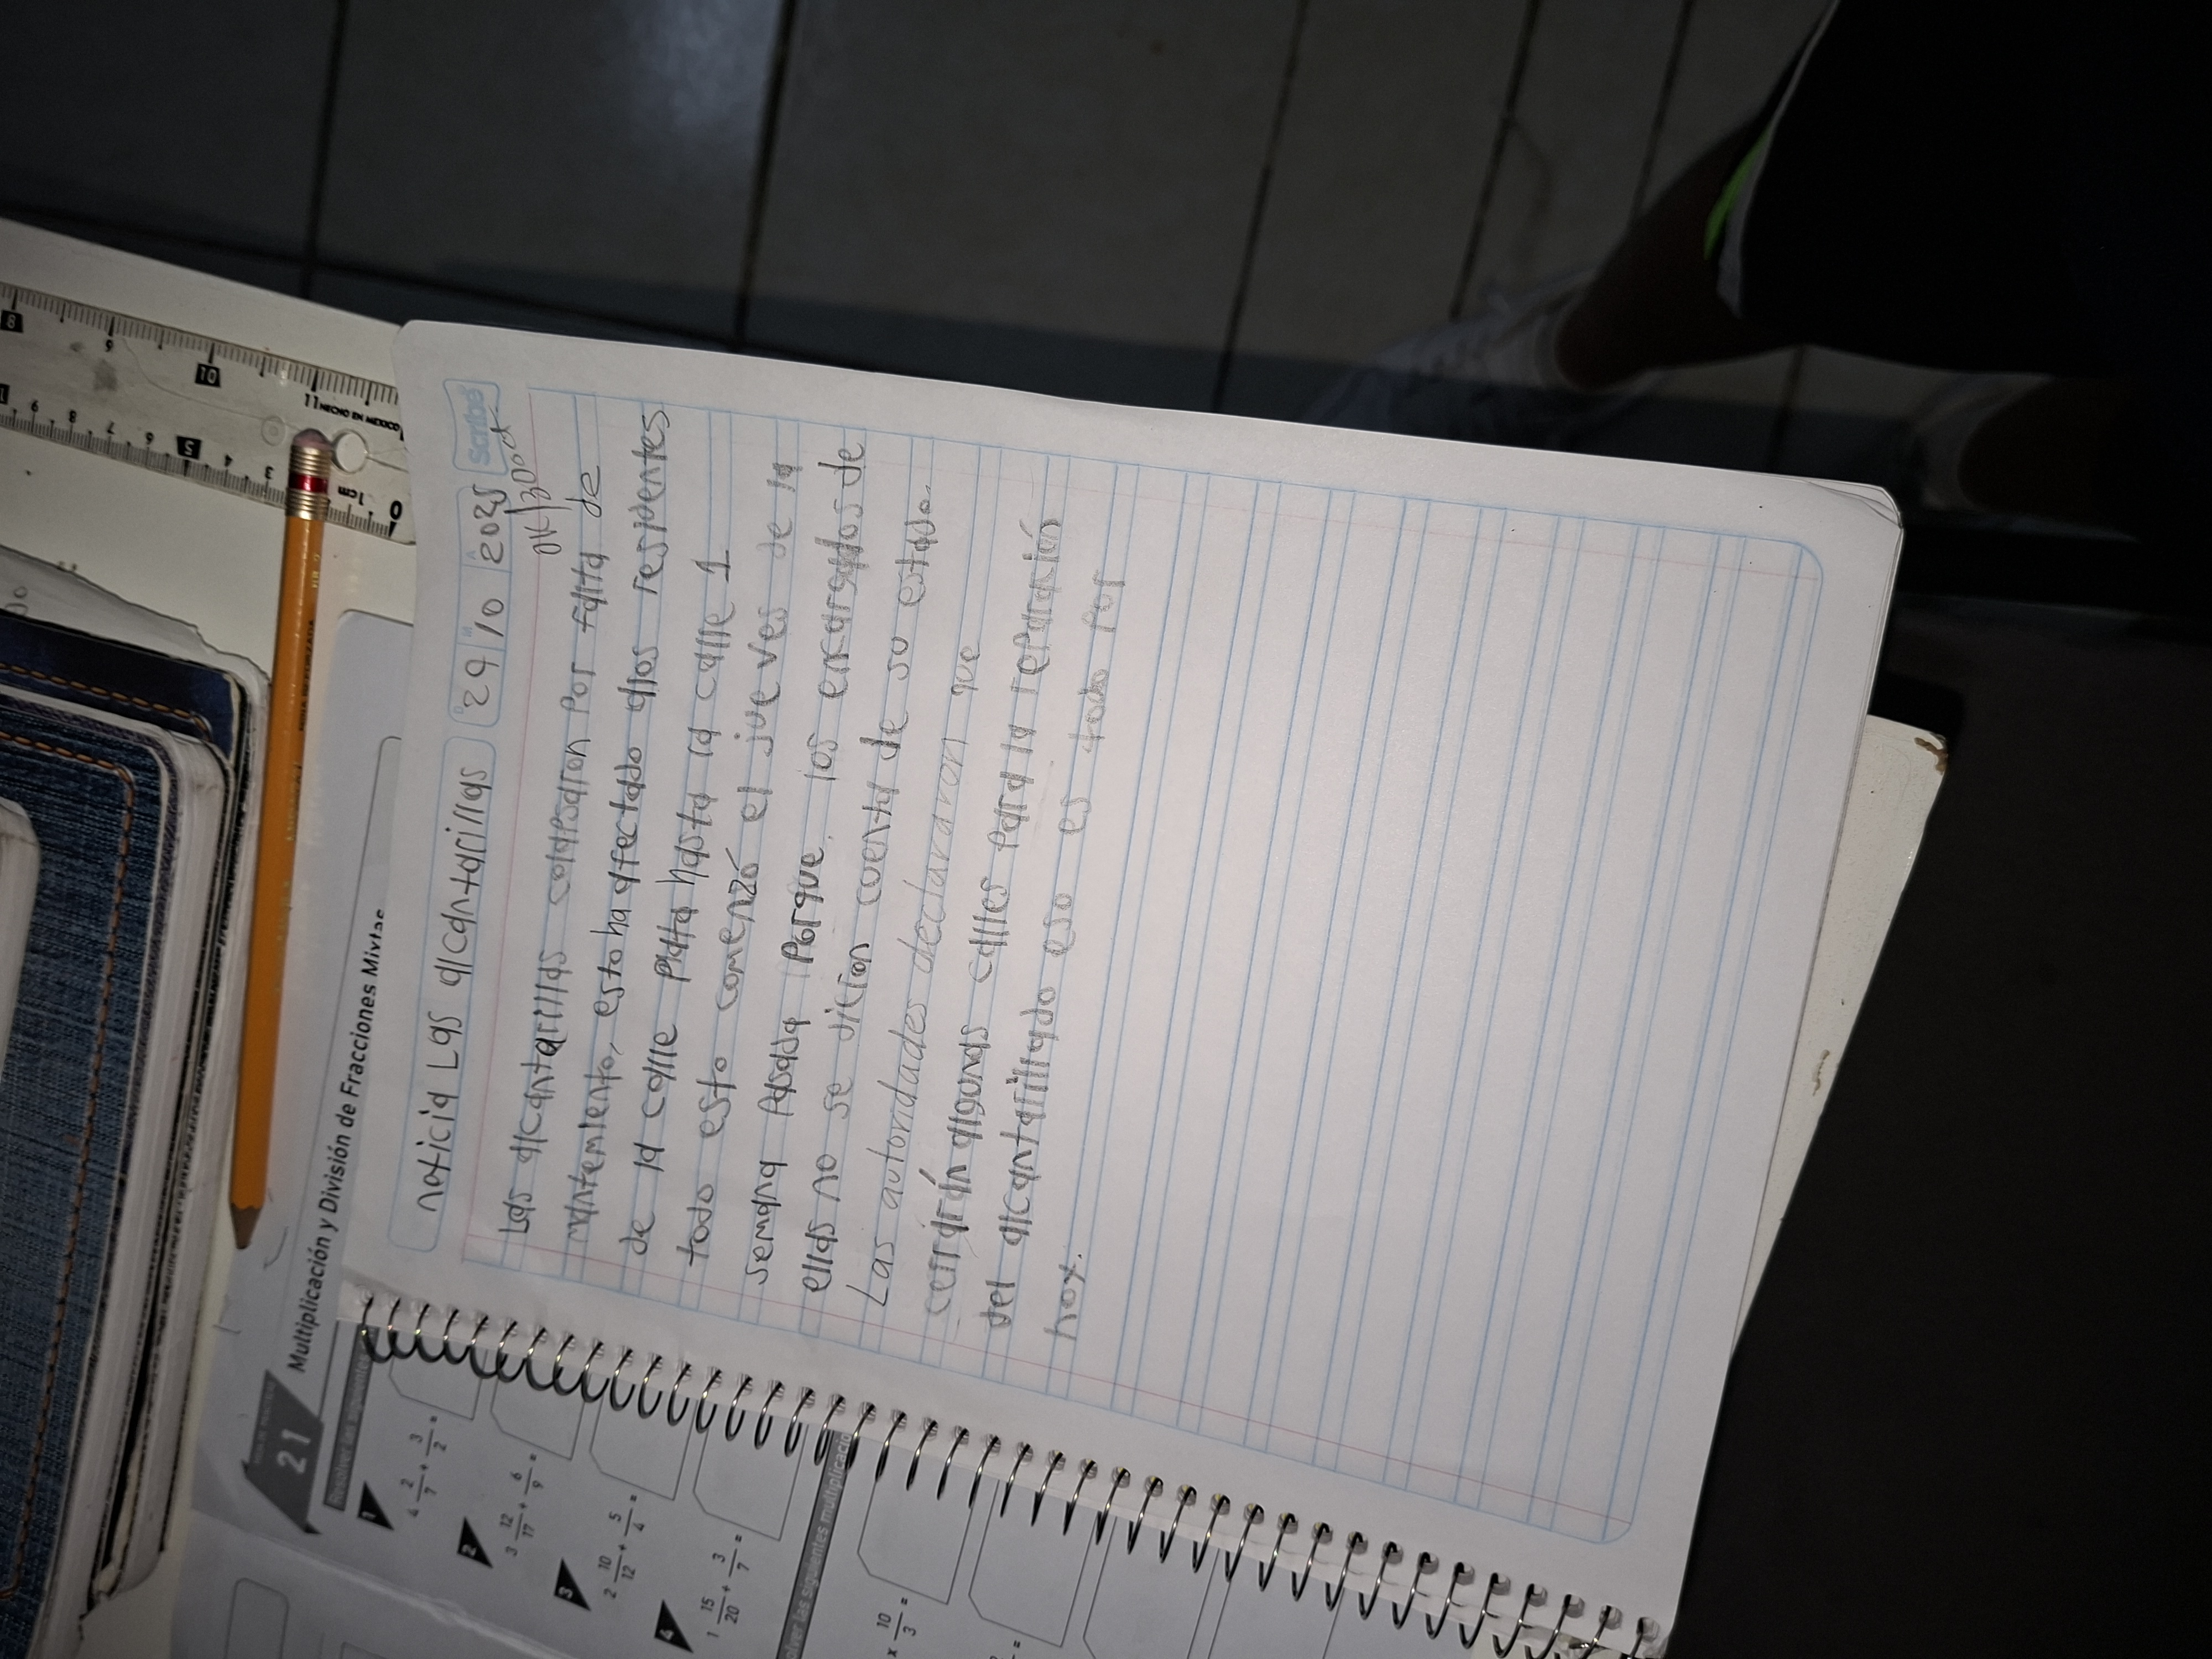 noticia Las alcantarillas
29 10 2025
Scribe
OK|30oct
Las alcantarillas colapsaron por falta de
mantemiento, esto ha afectado a los residentes
de la calle Plata hasta la calle 1
todo esto comenzó el jueves de la
semana pasada porque, los encargados de
ellas no se dicion cuenta de so estado.
Las autoridades declararon que
cerrarán algunas calles para la reparación
del alcantarillado eso es todo por
hoy.
21
Multiplicación y División de Fracciones Mixtas
Resolver las siguientes
1
4 2/7 + 3/2 =
2
3 12/17 + 6/9 =
3
2 10/12 + 5/4 =
4
1 15/20 + 3/7 =
olver las siguientes multiplicacio
x 10/3 =
HECHO EN MEXICO
8 9 10 11
0 1cm 3 4 5 6 7 8 9